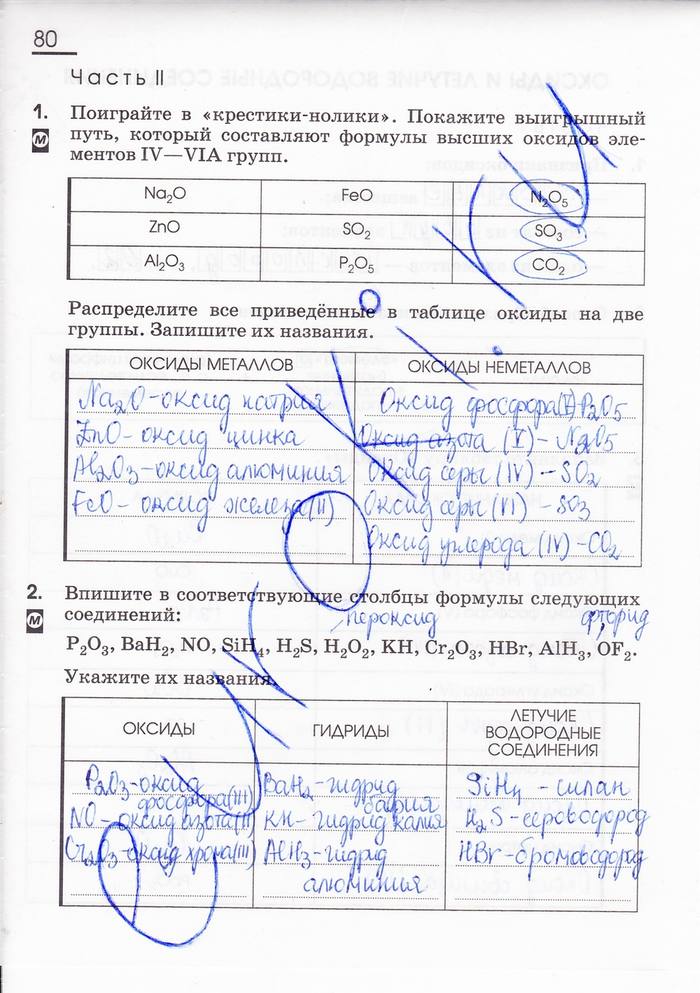 80
Часть II
1. Поиграйте в «крестики-нолики». Покажите выигрышный
путь, который составляют формулы высших оксидов эле-
ментов IV—VIA групп.
Na₂O FeO N₂O₅
ZnO SO₂ SO₃
Al₂O₃ P₂O₅ CO₂
Распределите все приведённые в таблице оксиды на две
группы. Запишите их названия.
ОКСИДЫ МЕТАЛЛОВ ОКСИДЫ НЕМЕТАЛЛОВ
Na₂O-оксид натрия Оксид фосфора(V) P₂O₅
ZnO- оксид цинка Оксид азота (V)- N₂O₅
Al₂O₃-оксид алюминия Оксид серы (IV) - SO₂
FeO- оксид железа(II) Оксид серы (VI) - SO₃
Оксид углерода (IV) -CO₂
2. Впишите в соответствующие столбцы формулы следующих
соединений:
пероксид фторид
P₂O₃, BaH₂, NO, SiH₄, H₂S, H₂O₂, KH, Cr₂O₃, HBr, AlH₃, OF₂.
Укажите их названия.
ОКСИДЫ ГИДРИДЫ ЛЕТУЧИЕ
ВОДОРОДНЫЕ
СОЕДИНЕНИЯ
P₂O₃-оксид BaH₂-гидрид SiH₄ - силан
фосфора(III) бария
NO- оксид азота(II) KH- гидрид калия H₂S - сероводород
Cr₂O₃-оксид хрома(III) AlH₃-гидрид HBr-бромоводород
алюминия